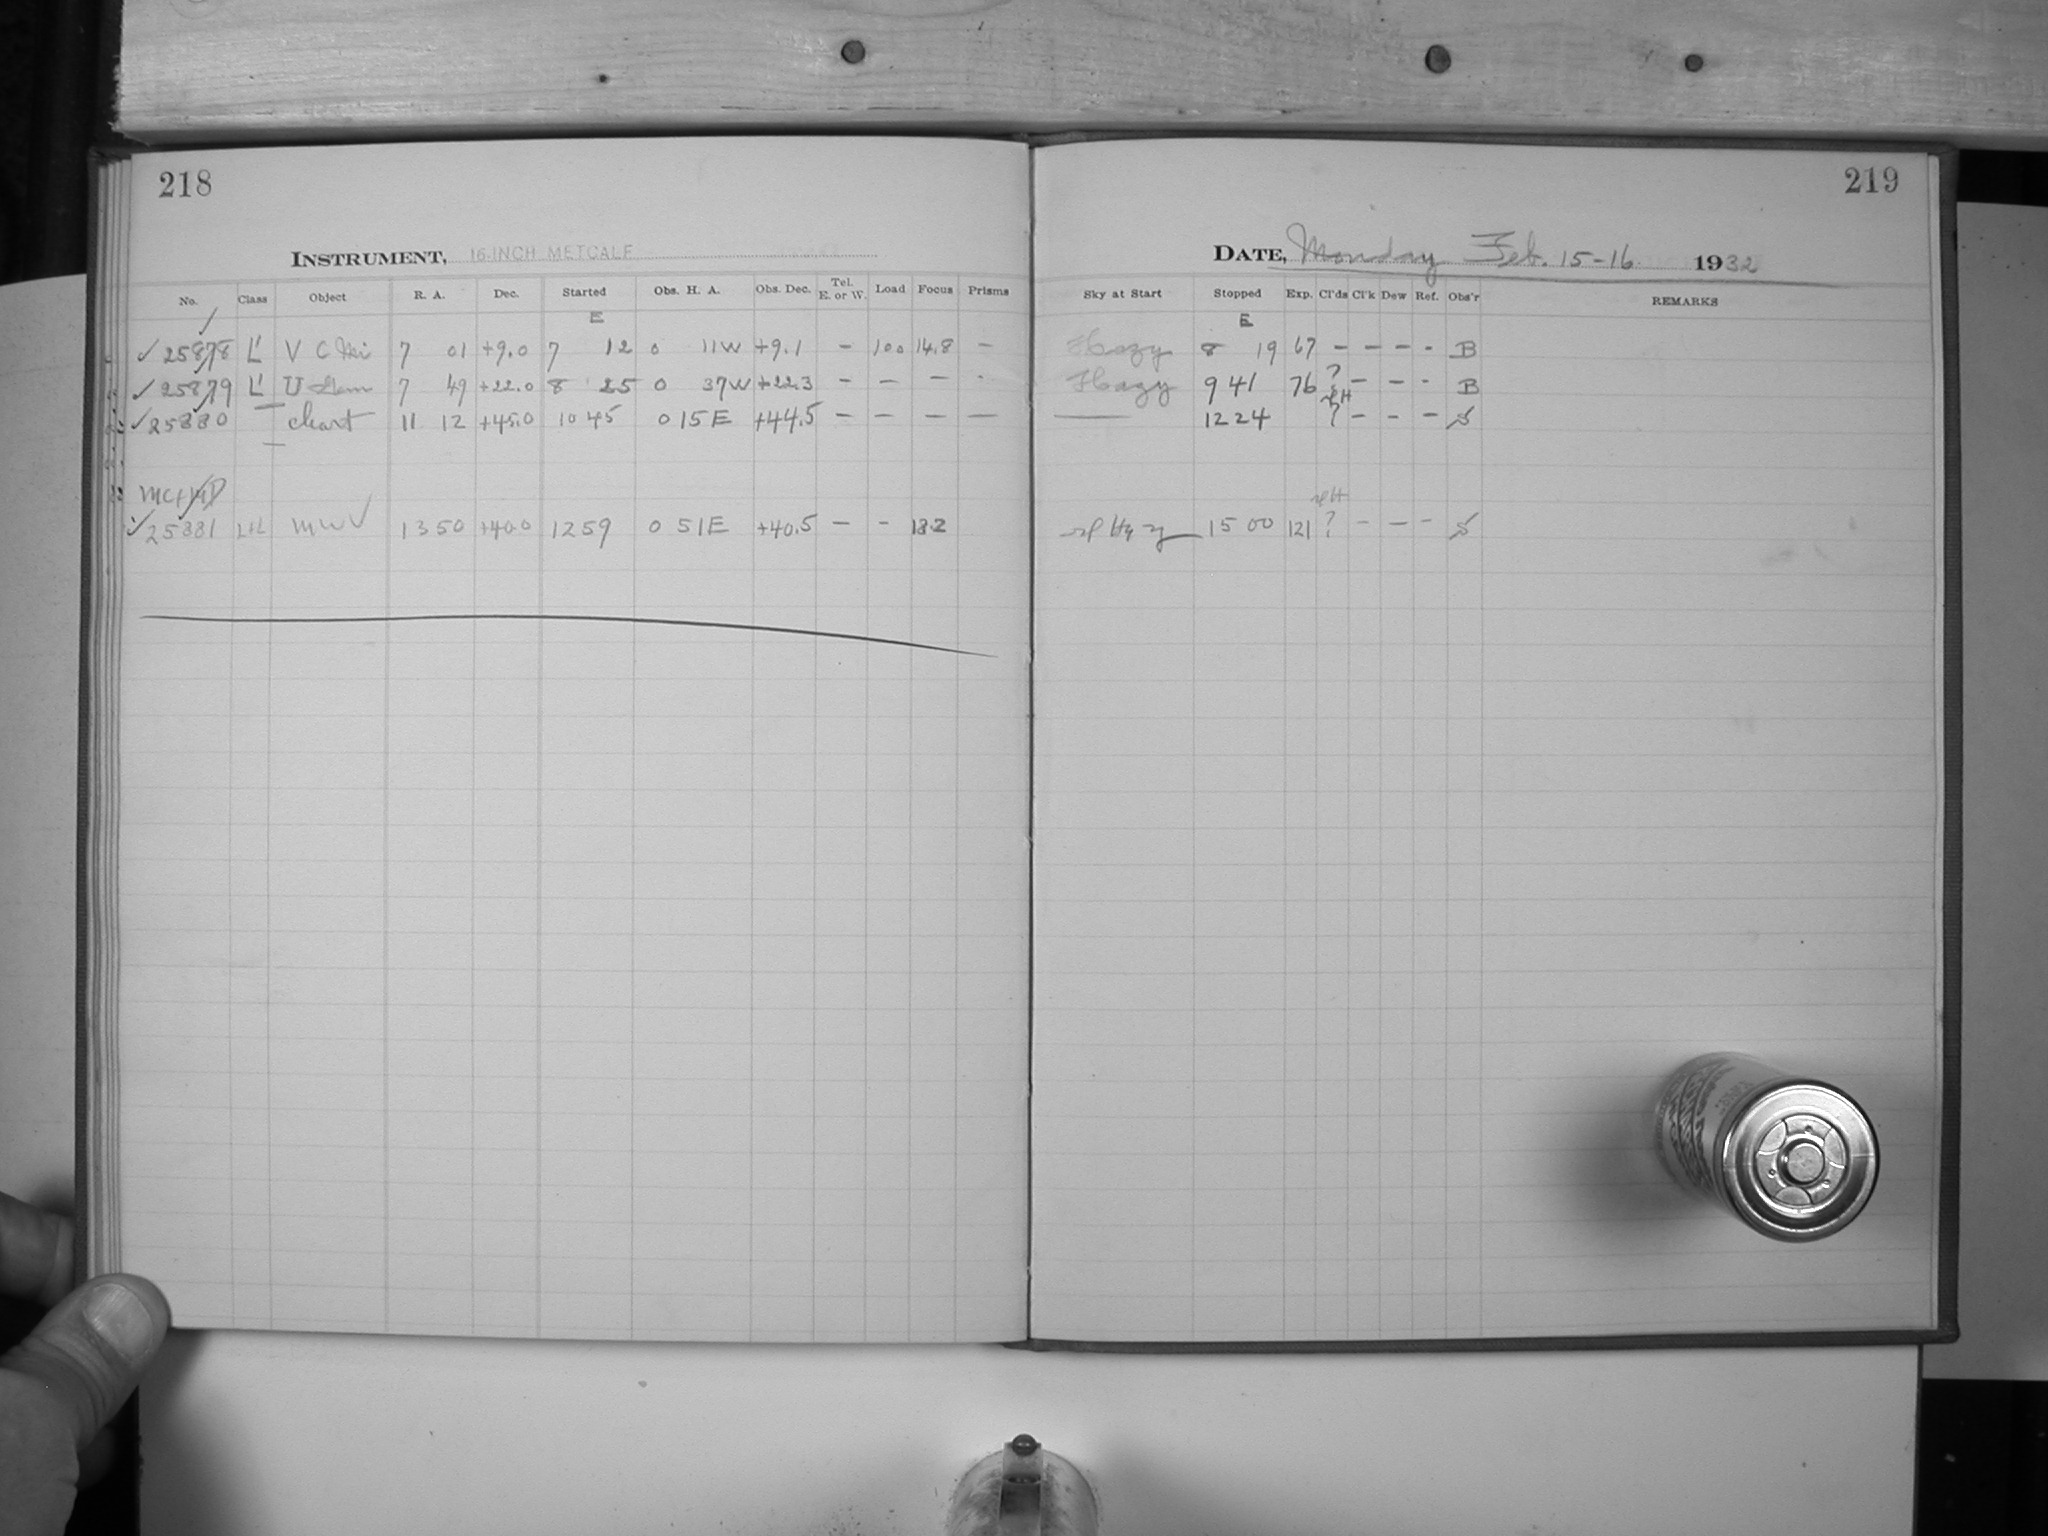 218
INSTRUMENT, 16-INCH METCALF
No. Class Object R. A. Dec. Started Obs. H. A. Obs. Dec. Tel. E. or W. Load Focus Prisms
E
✓ 25878 L' V C Mi 7 01 +9.0 7 12 0 11W +9.1 - 100 14.8 -
✓ 25879 L' U Gem 7 49 +22.0 8 25 0 37W +22.3 - - - -
✓ 25880 — chart 11 12 +45.0 10 45 0 15E +44.5 - - - -
✓ 25881 L+L MWV 13 50 +40.0 12 59 0 51E +40.5 - - 18.2
219
DATE, Monday Feb. 15-16 1932
Sky at Start Stopped Exp. Cl'ds Cl'k Dew Ref. Obs'r REMARKS
E
Hazy 8 19 67 - - - - B
Hazy 9 41 76 ? - - - B
— 12 24 ? - - - S
15 00 121 ? - - - S